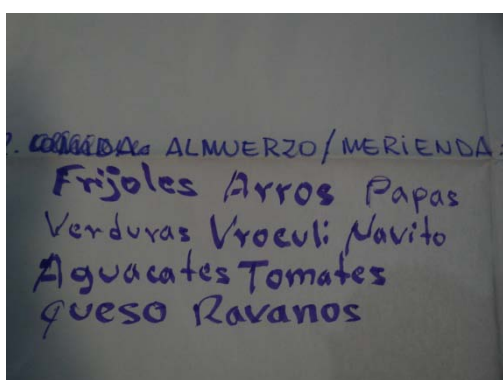 . ALMUERZO/MERIENDA:
Frijoles Arros Papas
Verduras Vroculi Navito
Aguacates Tomates
queso Ravanos